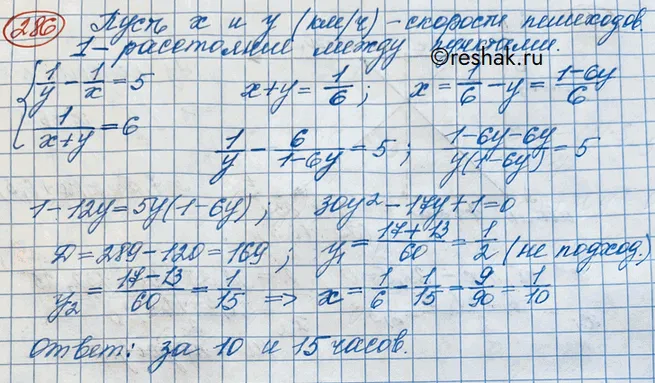 286 Пусть x и y (км/ч) - скорости пешеходов.
1 - расстояние между пунктами.
©reshak.ru
{ 1/y - 1/x = 5
1/(x+y) = 6
x+y = 1/6; x = 1/6 - y = (1-6y)/6
1/y - 6/(1-6y) = 5; (1-6y-6y)/(y(1-6y)) = 5
1-12y = 5y(1-6y); 30y² - 17y + 1 = 0
D = 289 - 120 = 169; y₁ = (17+13)/60 = 1/2 (не подход.)
y₂ = (17-13)/60 = 1/15 => x = 1/6 - 1/15 = 9/90 = 1/10
Ответ: за 10 и 15 часов.